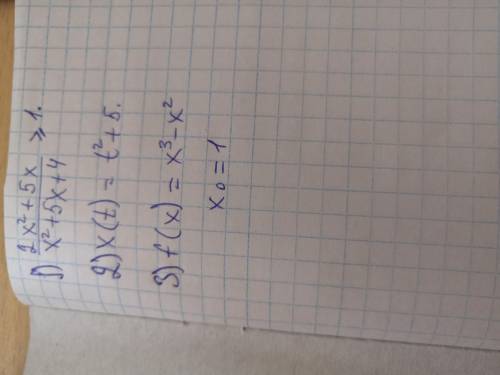 1) (2x² + 5x)/(x² + 5x + 4) ⩾ 1.
2) x(t) = t² + 5.
3) f(x) = x³ - x²
x₀ = 1